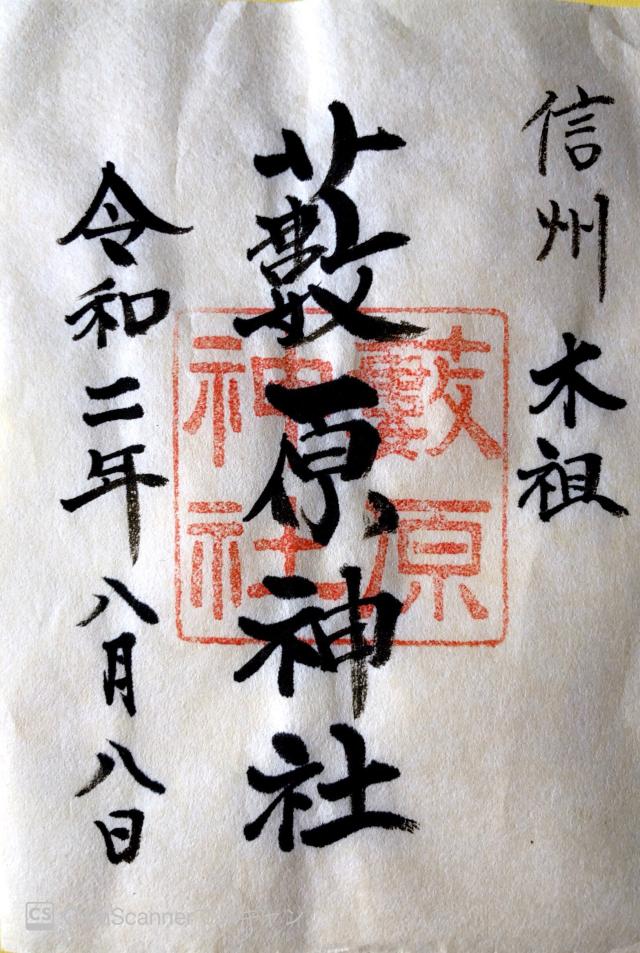 信州 木祖
藪原神社
藪原
神社
令和二年 八月八日
CS CamScanner でスキャン